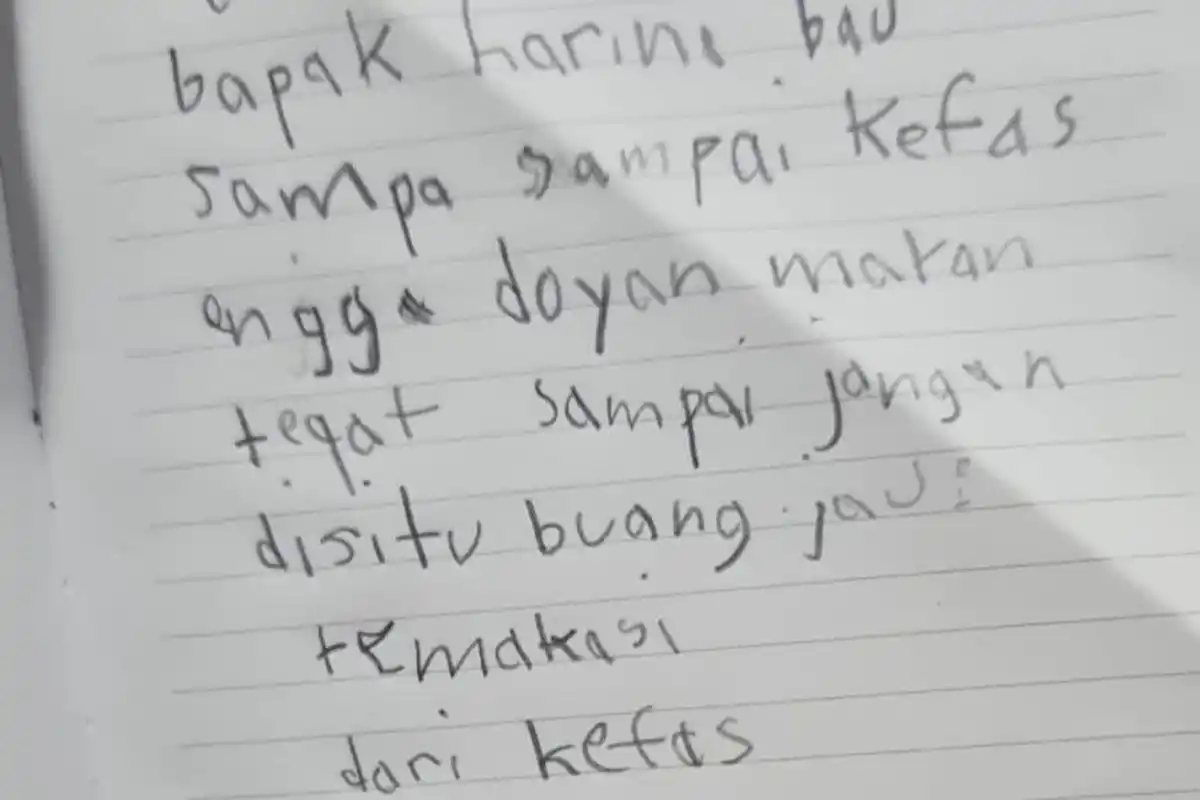 bapak harini bau
sampa sampai kefas
engga doyan makan
teqat sampai jangan
disitu buang jaui
temakasi
dari kefas